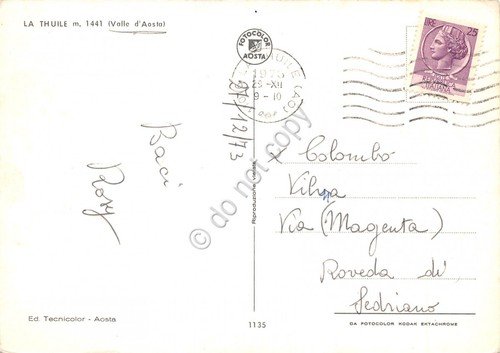 LA THUILE m. 1441 (Valle d'Aosta)
FOTOCOLOR
AOSTA
LIRE 25
ITALIANA
THUILE (AO)
1973
29-XII
9-10
27/12/73
Baci
Rosy
x Colombo
Via (Magenta)
Roveda di
Sedriano
Riproduzione vietata
© do not copy
Ed. Tecnicolor - Aosta
1135
DA FOTOCOLOR KODAK EKTACHROME